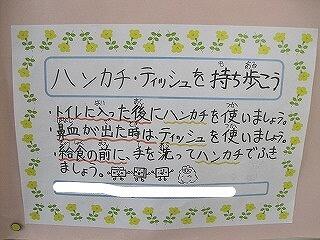 ハンカチ・ティッシュを持ち歩こう
・トイレに入った後にハンカチを使いましょう。
・鼻血が出た時は、ティッシュを使いましょう。
・給食の前に、手を洗ってハンカチでふき
ましょう。